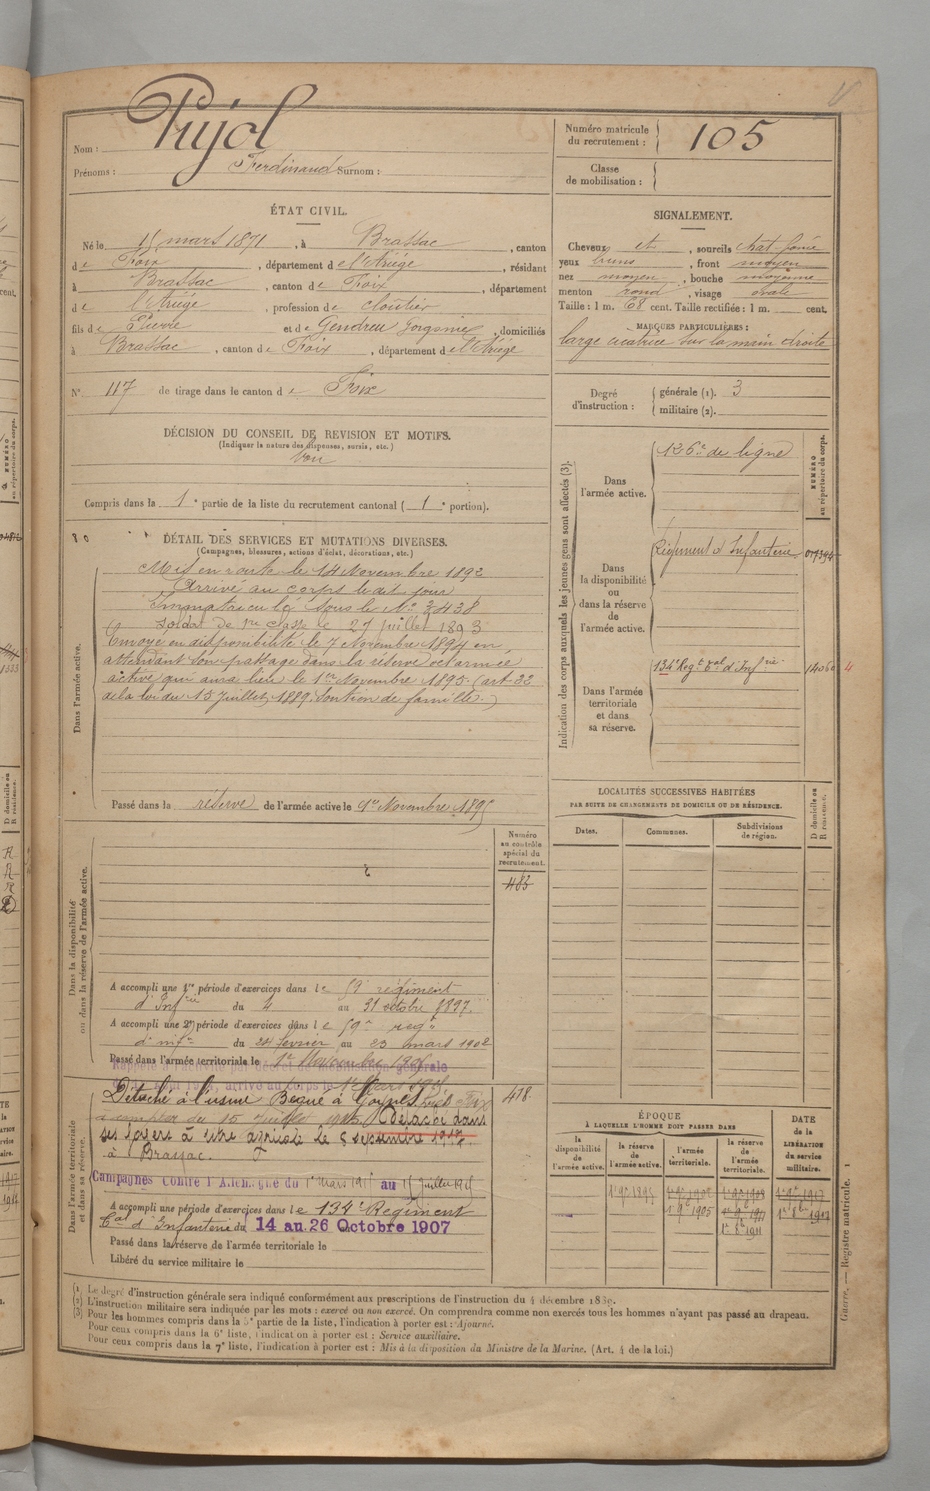 Nom : Pujol
Prénoms : Ferdinand Surnom :
Numéro matricule du recrutement : 105
Classe de mobilisation :
ÉTAT CIVIL.
Né le 15 mars 1871, à Brassac, canton
de Foix, département de l'Ariège, résidant
à Brassac, canton de Foix, département
de l'Ariège, profession de cloutier
fils de Pierre et de Gendreu, domiciliés
à Brassac, canton de Foix, département de l'Ariège
N° 117 de tirage dans le canton de Foix
DÉCISION DU CONSEIL DE REVISION ET MOTIFS.
(Indiquer la nature des dispenses, sursis, etc.)
Bon
Compris dans la 1e partie de la liste du recrutement cantonal (1e portion).
DÉTAIL DES SERVICES ET MUTATIONS DIVERSES.
(Campagnes, blessures, actions d'éclat, décorations, etc.)
Dans l'armée active.
Mis en route le 14 Novembre 1892
Arrivé au corps le dit jour
Immatriculé sous le N° 3438
Soldat de 1re classe le 27 juillet 1893
Envoyé en disponibilité le 7 Novembre 1894 en
attendant son passage dans la réserve de l'armée
active qui aura lieu le 1er Novembre 1895 (art 22
de la loi du 15 Juillet 1889. Soutien de famille.)
Passé dans la réserve de l'armée active le 1er Novembre 1895
Dans la disponibilité ou dans la réserve de l'armée active.
Numéro au contrôle spécial du recrutement.
483
A accompli une 1re période d'exercices dans le 59e régiment
d'Infrie du 4 au 31 octobre 1897.
A accompli une 2e période d'exercices dans le 59e regt
d'inf. du 24 février au 23 mars 1902
Passé dans l'armée territoriale le 1er Novembre 1905
Dans l'armée territoriale et dans sa réserve.
478
Rappelé à l'activité par décret de mobilisation générale
arrivé au corps le 1er Mars 1915.
Détaché à l'usine à
à compter du 15 Juillet 1915. Détaché dans
ses foyers à titre agricole le 5 septembre 1917
à Brassac.
Campagnes contre l'Allemagne du 1er Mars 1915 au 15 juillet 1915
A accompli une période d'exercices dans le 134e Régiment
tal d'Infanterie du 14 au 26 Octobre 1907
Passé dans la réserve de l'armée territoriale le
Libéré du service militaire le
SIGNALEMENT.
Cheveux et, sourcils chat. foncé
yeux bruns, front moyen
nez moyen, bouche moyenne
menton rond, visage ovale
Taille : 1 m. 68 cent. Taille rectifiée : 1 m. cent.
MARQUES PARTICULIÈRES :
large cicatrice sur la main droite
Degré d'instruction :
générale (1). 3
militaire (2).
Indication des corps auxquels les jeunes gens sont affectés (3).
NUMÉRO au répertoire du corps.
Dans l'armée active.
126e de ligne
Dans la disponibilité ou dans la réserve de l'armée active.
Régiment d'Infanterie
Dans l'armée territoriale et dans sa réserve.
134e Regt tal d'Infrie
LOCALITÉS SUCCESSIVES HABITÉES
PAR SUITE DE CHANGEMENTS DE DOMICILE OU DE RÉSIDENCE.
Dates. Communes. Subdivisions de région.
D domicile ou R résidence.
ÉPOQUE
À LAQUELLE L'HOMME DOIT PASSER DANS
la disponibilité de l'armée active. la réserve de l'armée active. l'armée territoriale. la réserve de l'armée territoriale.
DATE de la LIBÉRATION du service militaire.
1er 9bre 1895
1er 9bre 1905
(1) Le degré d'instruction générale sera indiqué conformément aux prescriptions de l'instruction du 4 décembre 1889.
(2) L'instruction militaire sera indiquée par les mots : exercé ou non exercé. On comprendra comme non exercés tous les hommes n'ayant pas passé au drapeau.
(3) Pour les hommes compris dans la 5e partie de la liste, l'indication à porter est : Ajourné.
Pour ceux compris dans la 6e liste, l'indication à porter est : Service auxiliaire.
Pour ceux compris dans la 7e liste, l'indication à porter est : Mis à la disposition du Ministre de la Marine. (Art. 4 de la loi.)
Guerre. — Registre matricule. 1